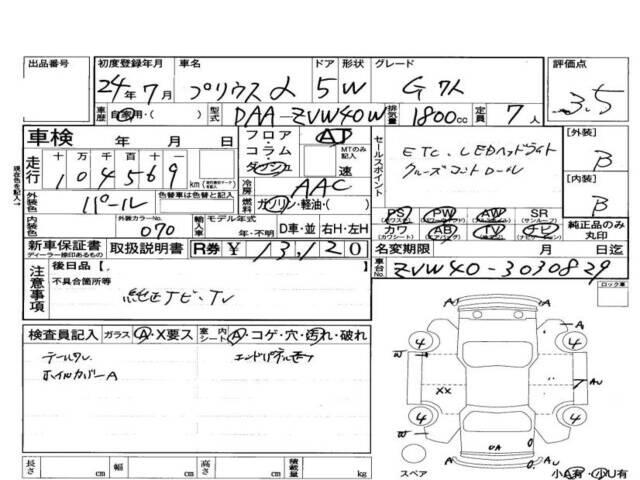 出品番号
初度登録年月
24年7月
車名
プリウスα
ドア
5
形状
W
グレード
G 7人
評価点
3.5
車歴
自家用・( )
型式
DAA-ZVW40W
排気量
1800cc
定員
7人
車検 年 月 日
フロア・コラム・ダッシュ
AT
MTのみ記入
速
走行
十万千百十一
104569km
外装色
パール
色替車は色替と記入
冷房
AAC
燃料
ガソリン・軽油・( )
内装色
外装カラーNo.
070
輸入車
モデル年式
年・不明
D車・並
右H・左H
セールスポイント
ETC、LEDヘッドライト
クルーズコントロール
PS
PW
AW
SR
(サンルーフ)
カワ
AB
TV
ナビ
純正品のみ
丸印
[外装]
B
[内装]
B
新車保証書
ディーラー捺印あるもの
取扱説明書
R券
¥13,120
名変期限 月 日迄
注意事項
後日品〔
不具合箇所等
純正ナビ・TV
車台No.
ZVW40-3030829
ロック車
検査員記入
ガラス
A・X要ス
室内
シート
A・コゲ・穴・汚れ・破れ
テールタレ
ホイルカバーA
A
A
4
4
W
W
XX
7
AU
4
4
UA
U
AU
スペア
小A有・小U有
長さ cm
幅 cm
高さ cm
積載量 kg